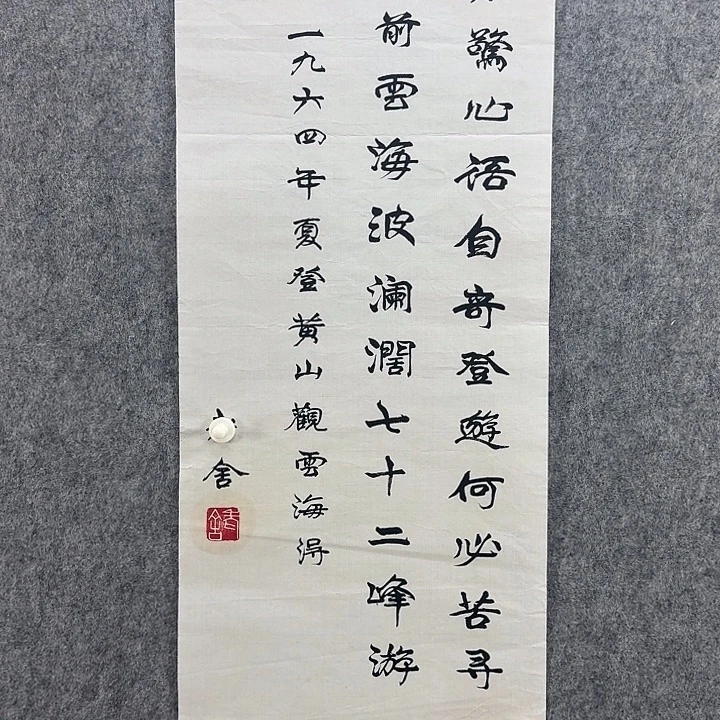 驚心语自寄登遊何必苦寻
前雲海波澜濶七十二峰游
一九六四年夏登黄山觀雲海得
舍
老舍